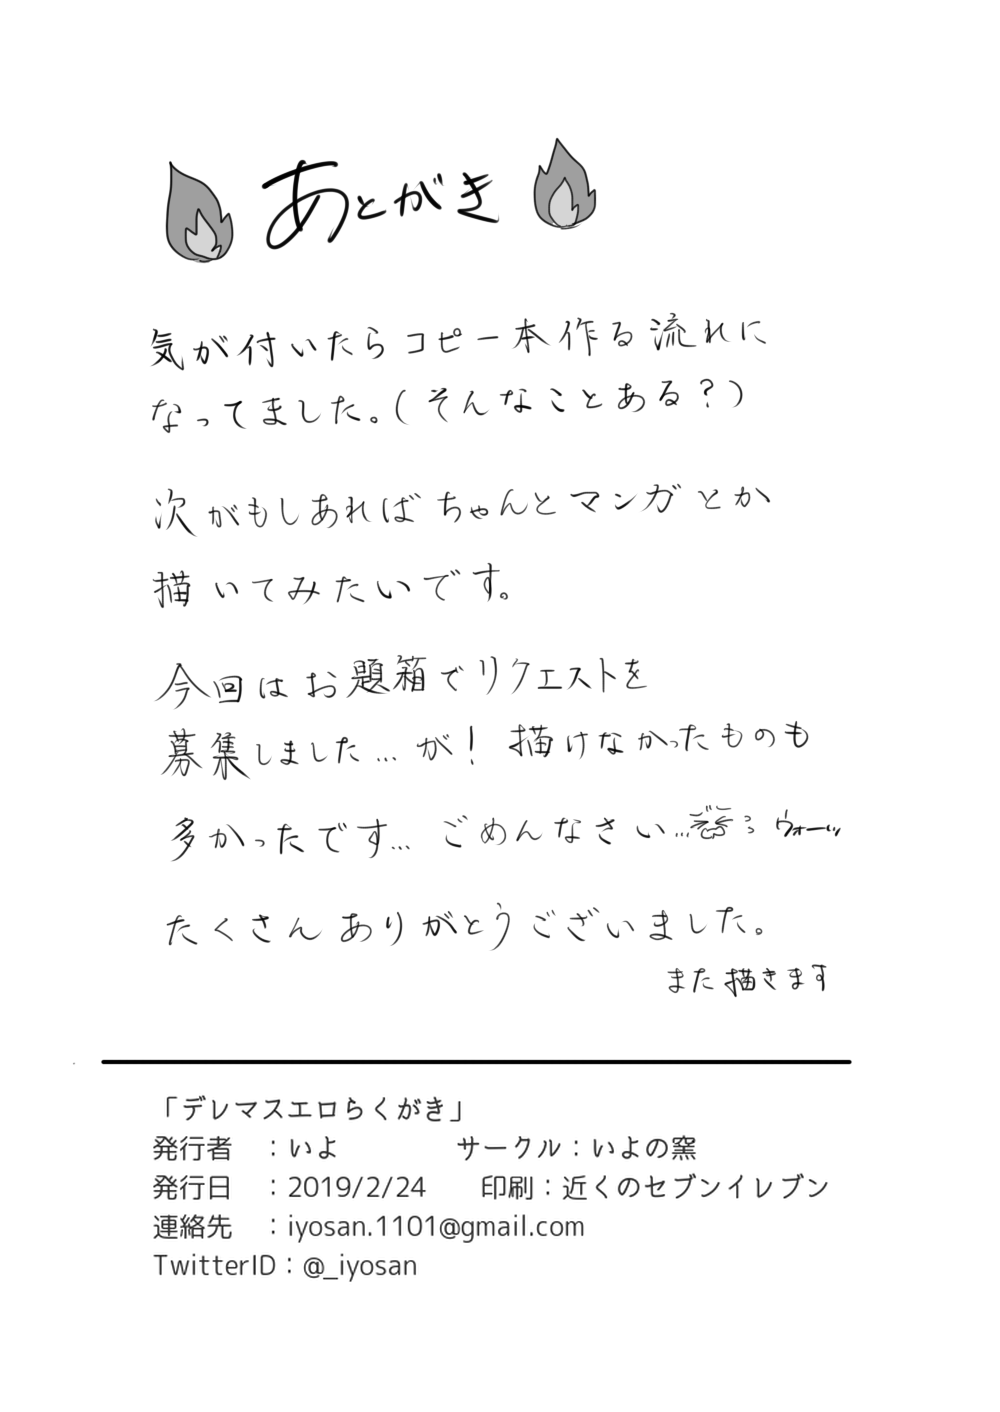 あとがき
気が付いたらコピー本作る流れに
なってました。(そんなことある?)
次がもしあればちゃんとマンガとか
描いてみたいです。
今回はお題箱でリクエストを
募集しました…が! 描けなかったものも
多かったです… ごめんなさい… ウォーッ
たくさんありがとうございました。
また描きます
「デレマスエロらくがき」
発行者 :いよ サークル:いよの窯
発行日 :2019/2/24 印刷:近くのセブンイレブン
連絡先 :iyosan.1101@gmail.com
TwitterID:@_iyosan